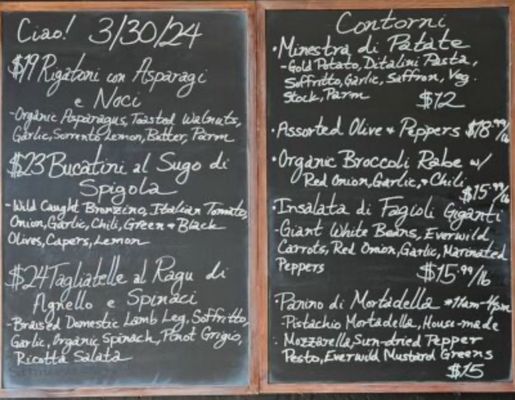 Ciao! 3/30/24
$19 Rigatoni con Asparagi
e Noci
-Organic Asparagus, Toasted Walnuts,
Garlic, Sorrento Lemon, Butter, Parm
$23 Bucatini al Sugo di
Spigola
-Wild Caught Bronzino, Italian Tomato,
Onion, Garlic, Chili, Green + Black
Olives, Capers, Lemon
$24 Tagliatelle al Ragu di
Agnello e Spinaci
-Braised Domestic Lamb Leg, Soffritto,
Garlic, Organic Spinach, Pinot Grigio,
Ricotta Salata
Contorni
·Minestra di Patate
-Gold Potato, Ditalini Pasta,
Soffritto, Garlic, Saffron, Veg.
Stock, Parm
$12
·Assorted Olive + Peppers $18.99/lb
·Organic Broccoli Rabe w/
Red Onion, Garlic, + Chili
$15.99/lb
·Insalata di Fagioli Giganti
-Giant White Beans, Everwild
Carrots, Red Onion, Garlic, Marinated
Peppers
$15.99/lb
·Panino di Mortadella *11am-4pm
-Pistachio Mortadella, House-made
Mozzarella, Sun-dried Pepper
Pesto, Everwild Mustard Greens
$15